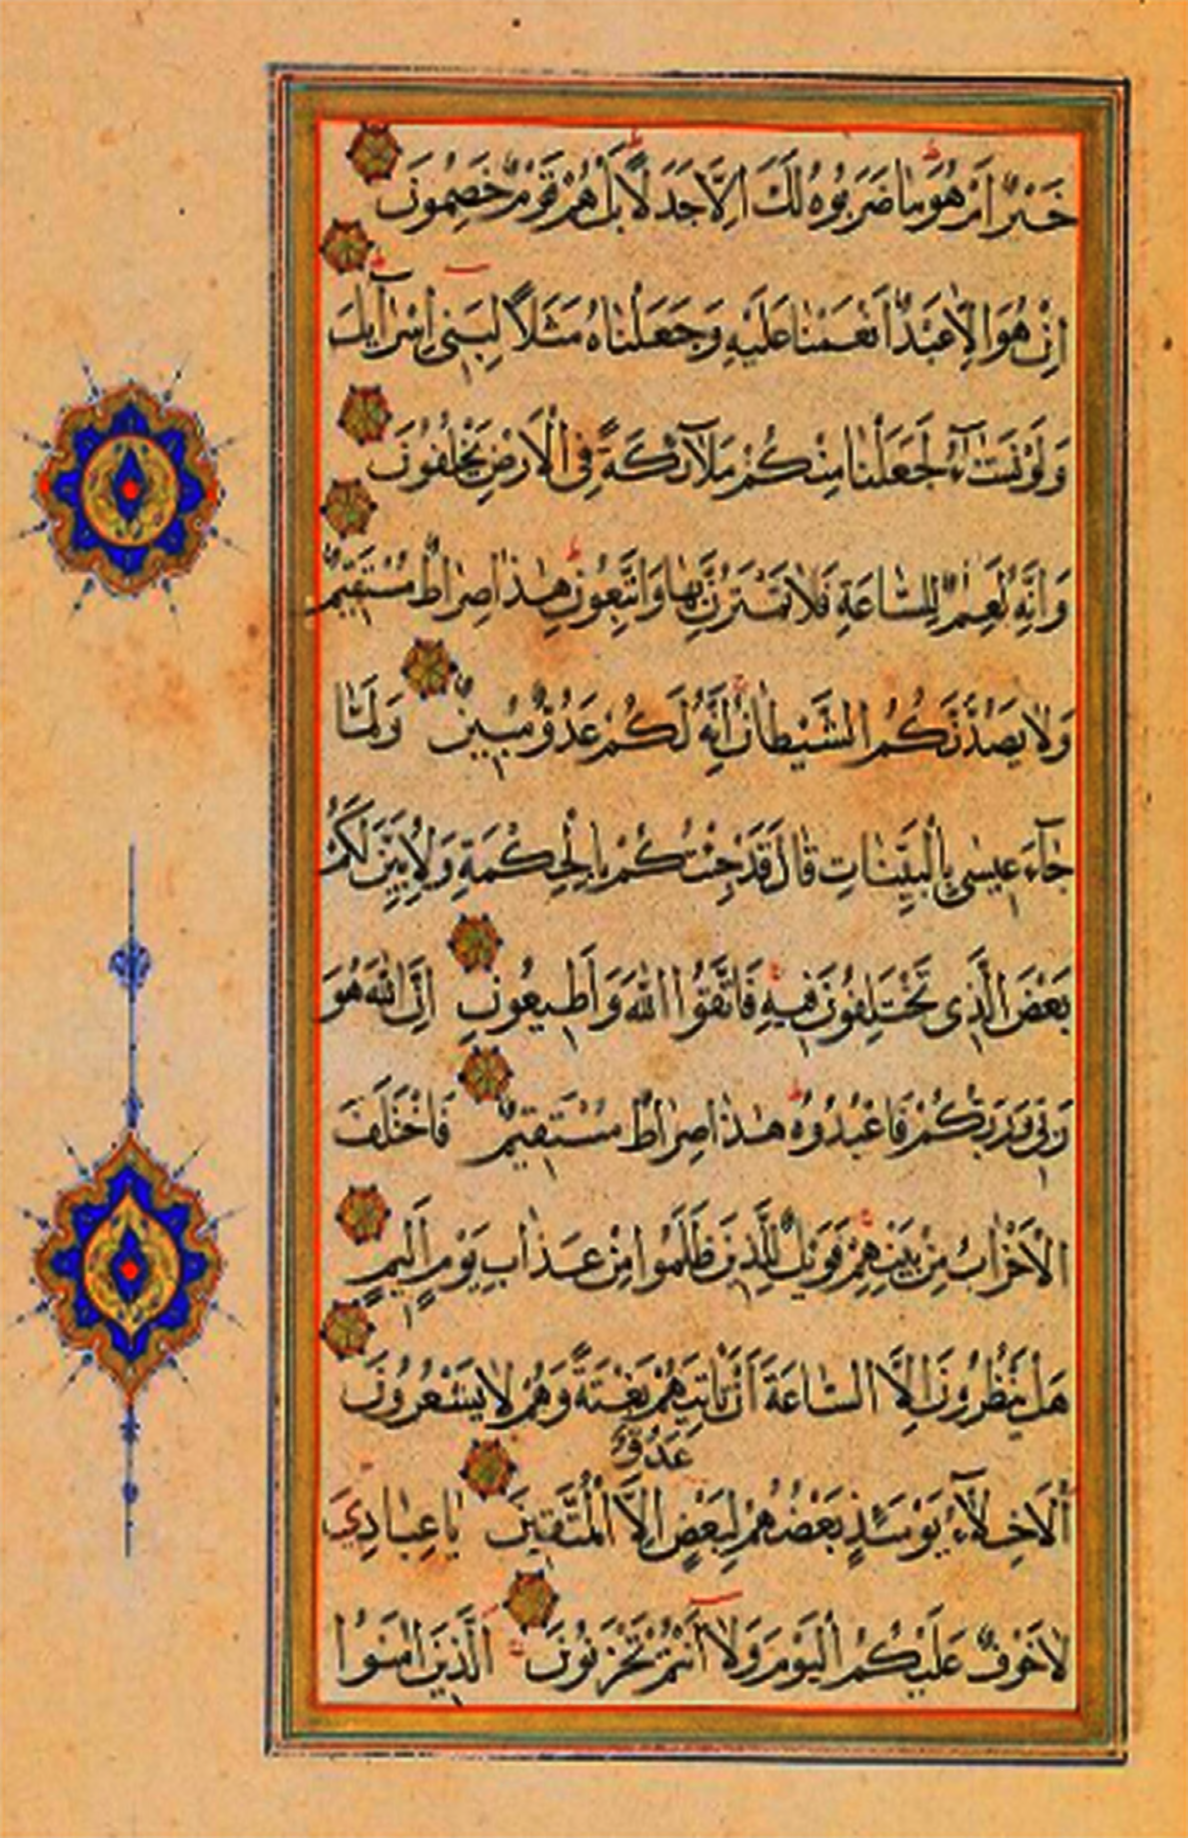 خَيْرٌ اَمْ هُوَ مَا ضَرَبُوهُ لَكَ اِلَّا جَدَلًا بَلْ هُمْ قَوْمٌ خَصِمُونَ
اِنْ هُوَ اِلَّا عَبْدٌ اَنْعَمْنَا عَلَيْهِ وَجَعَلْنَاهُ مَثَلًا لِبَنِى اِسْرَآئِلَ
وَلَوْ نَشَآءُ لَجَعَلْنَا مِنْكُمْ مَلَآئِكَةً فِى الْاَرْضِ يَخْلُفُونَ
وَاِنَّهُ لَعِلْمٌ لِلسَّاعَةِ فَلَا تَمْتَرُنَّ بِهَا وَاتَّبِعُونِ هٰذَا صِرَاطٌ مُسْتَقِيمٌ
وَلَا يَصُدَّنَّكُمُ الشَّيْطَانُ اِنَّهُ لَكُمْ عَدُوٌّ مُبِينٌ وَلَمَّا
جَآءَ عِيسٰى بِالْبَيِّنَاتِ قَالَ قَدْ جِئْتُكُمْ بِالْحِكْمَةِ وَلِاُبَيِّنَ لَكُمْ
بَعْضَ الَّذِى تَخْتَلِفُونَ فِيهِ فَاتَّقُوا اللّٰهَ وَاَطِيعُونِ اِنَّ اللّٰهَ هُوَ
رَبِّى وَرَبُّكُمْ فَاعْبُدُوهُ هٰذَا صِرَاطٌ مُسْتَقِيمٌ فَاخْتَلَفَ
الْاَحْزَابُ مِنْ بَيْنِهِمْ فَوَيْلٌ لِلَّذِينَ ظَلَمُوا مِنْ عَذَابِ يَوْمٍ اَلِيمٍ
هَلْ يَنْظُرُونَ اِلَّا السَّاعَةَ اَنْ تَاْتِيَهُمْ بَغْتَةً وَهُمْ لَا يَشْعُرُونَ
عَدُوٌّ
اَلْاَخِلَّآءُ يَوْمَئِذٍ بَعْضُهُمْ لِبَعْضٍ اِلَّا الْمُتَّقِينَ يَا عِبَادِىَ
لَا خَوْفٌ عَلَيْكُمُ الْيَوْمَ وَلَا اَنْتُمْ تَحْزَنُونَ اَلَّذِينَ اٰمَنُوا